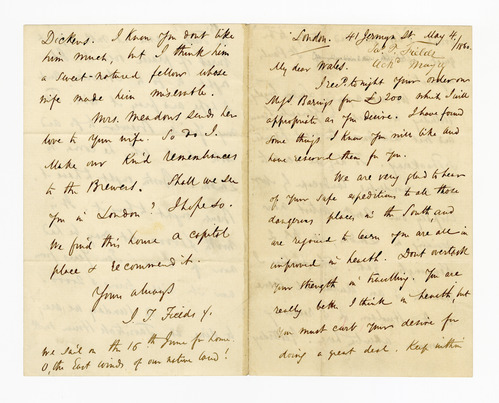 London. 41 Jermyn St. May 4./1860.
Jas. T. Fields
Ackd May 19
My dear Wales.
I recd. to night your order on
Messrs Barings for £200. which I will
appropriate as you desire. I have found
some things I know you will like and
have reserved them for you.
We are very glad to hear
of your safe expeditions to all those
dangerous places in the South, and
are rejoiced to learn you are all in
improved in health. Dont overtask
your strength in travelling. You are
really better I think in health, but
you must curb your desire for
doing a great deal. Keep within
Dickens. I know you dont like
him much, but I think him
a sweet-natured fellow whose
wife made him miserable.
Mrs. Meadows sends her
love to your wife. So do I.
Make our kind remembrances
to the Brewers. Shall we see
you in London? I hope so.
We find this house a capital
place & recommend it.
Yours always
J. T. Fields
We sail on the 16th June for home.
O, the East winds of our native land!